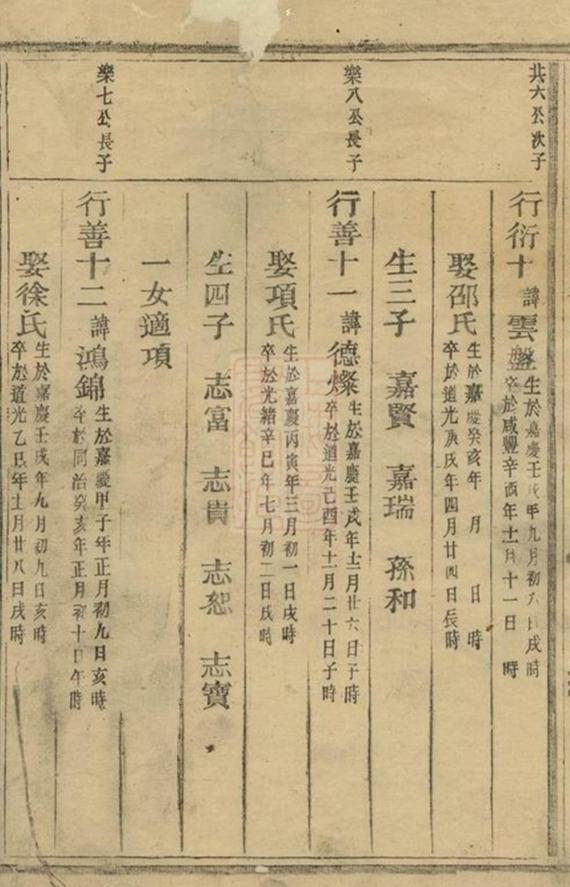 共六公次子
行衍十 諱雲盤
生於嘉慶壬戌年九月初八日戌時
卒於咸豐辛酉年十一月十一日 時
娶邵氏
生於嘉慶癸亥年 月 日 時
卒於道光庚戌年四月廿四日辰時
生三子 嘉賢 嘉瑞 孫和
樂八公長子
行善十一 諱德燦
生於嘉慶壬戌年十二月廿六日子時
卒於道光己酉年十一月二十日子時
娶項氏
生於嘉慶丙寅年三月初一日戌時
卒於光緒辛巳年七月初二日戌時
生四子 志富 志貴 志恕 志寶
一女適項
樂七公長子
行善十二 諱鴻錦
生於嘉慶甲子年正月初九日亥時
卒於同治癸亥年正月初十日午時
娶徐氏
生於嘉慶壬戌年九月初九日亥時
卒於道光乙巳年十一月廿八日戌時